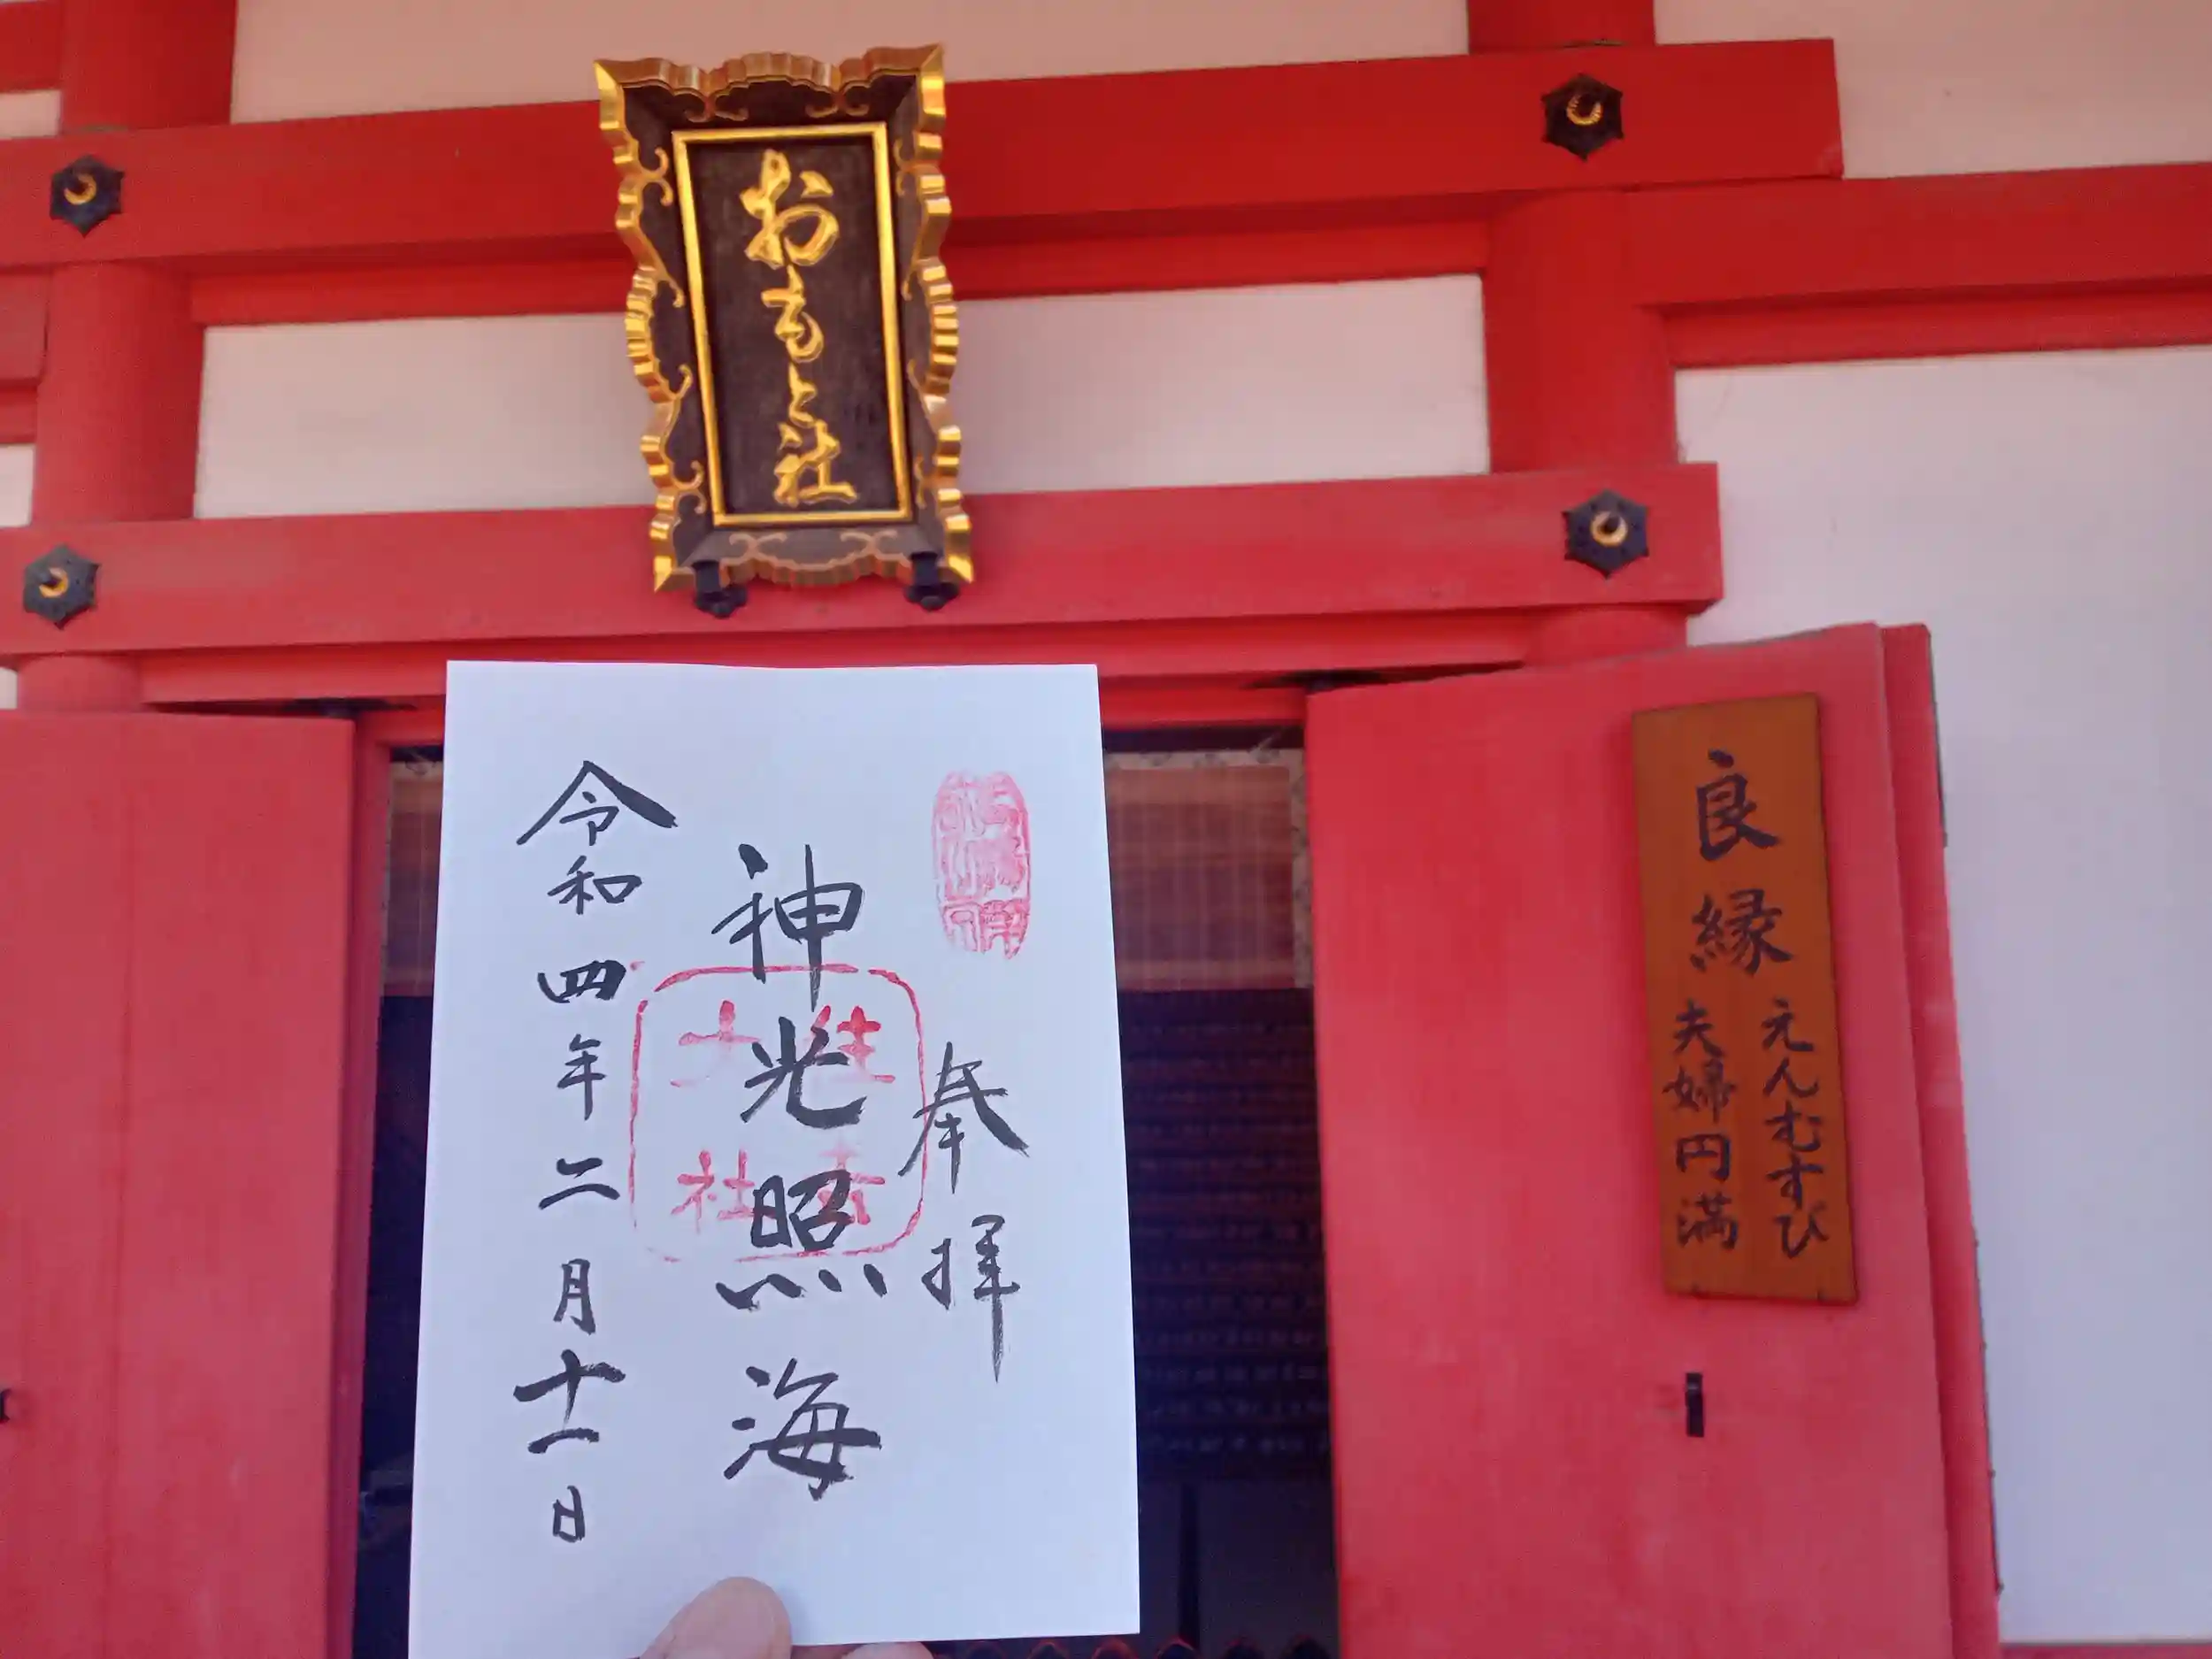 おもと社
奉拝
神光照海
令和四年二月十一日
住吉
大社
良縁
えんむすび
夫婦円満